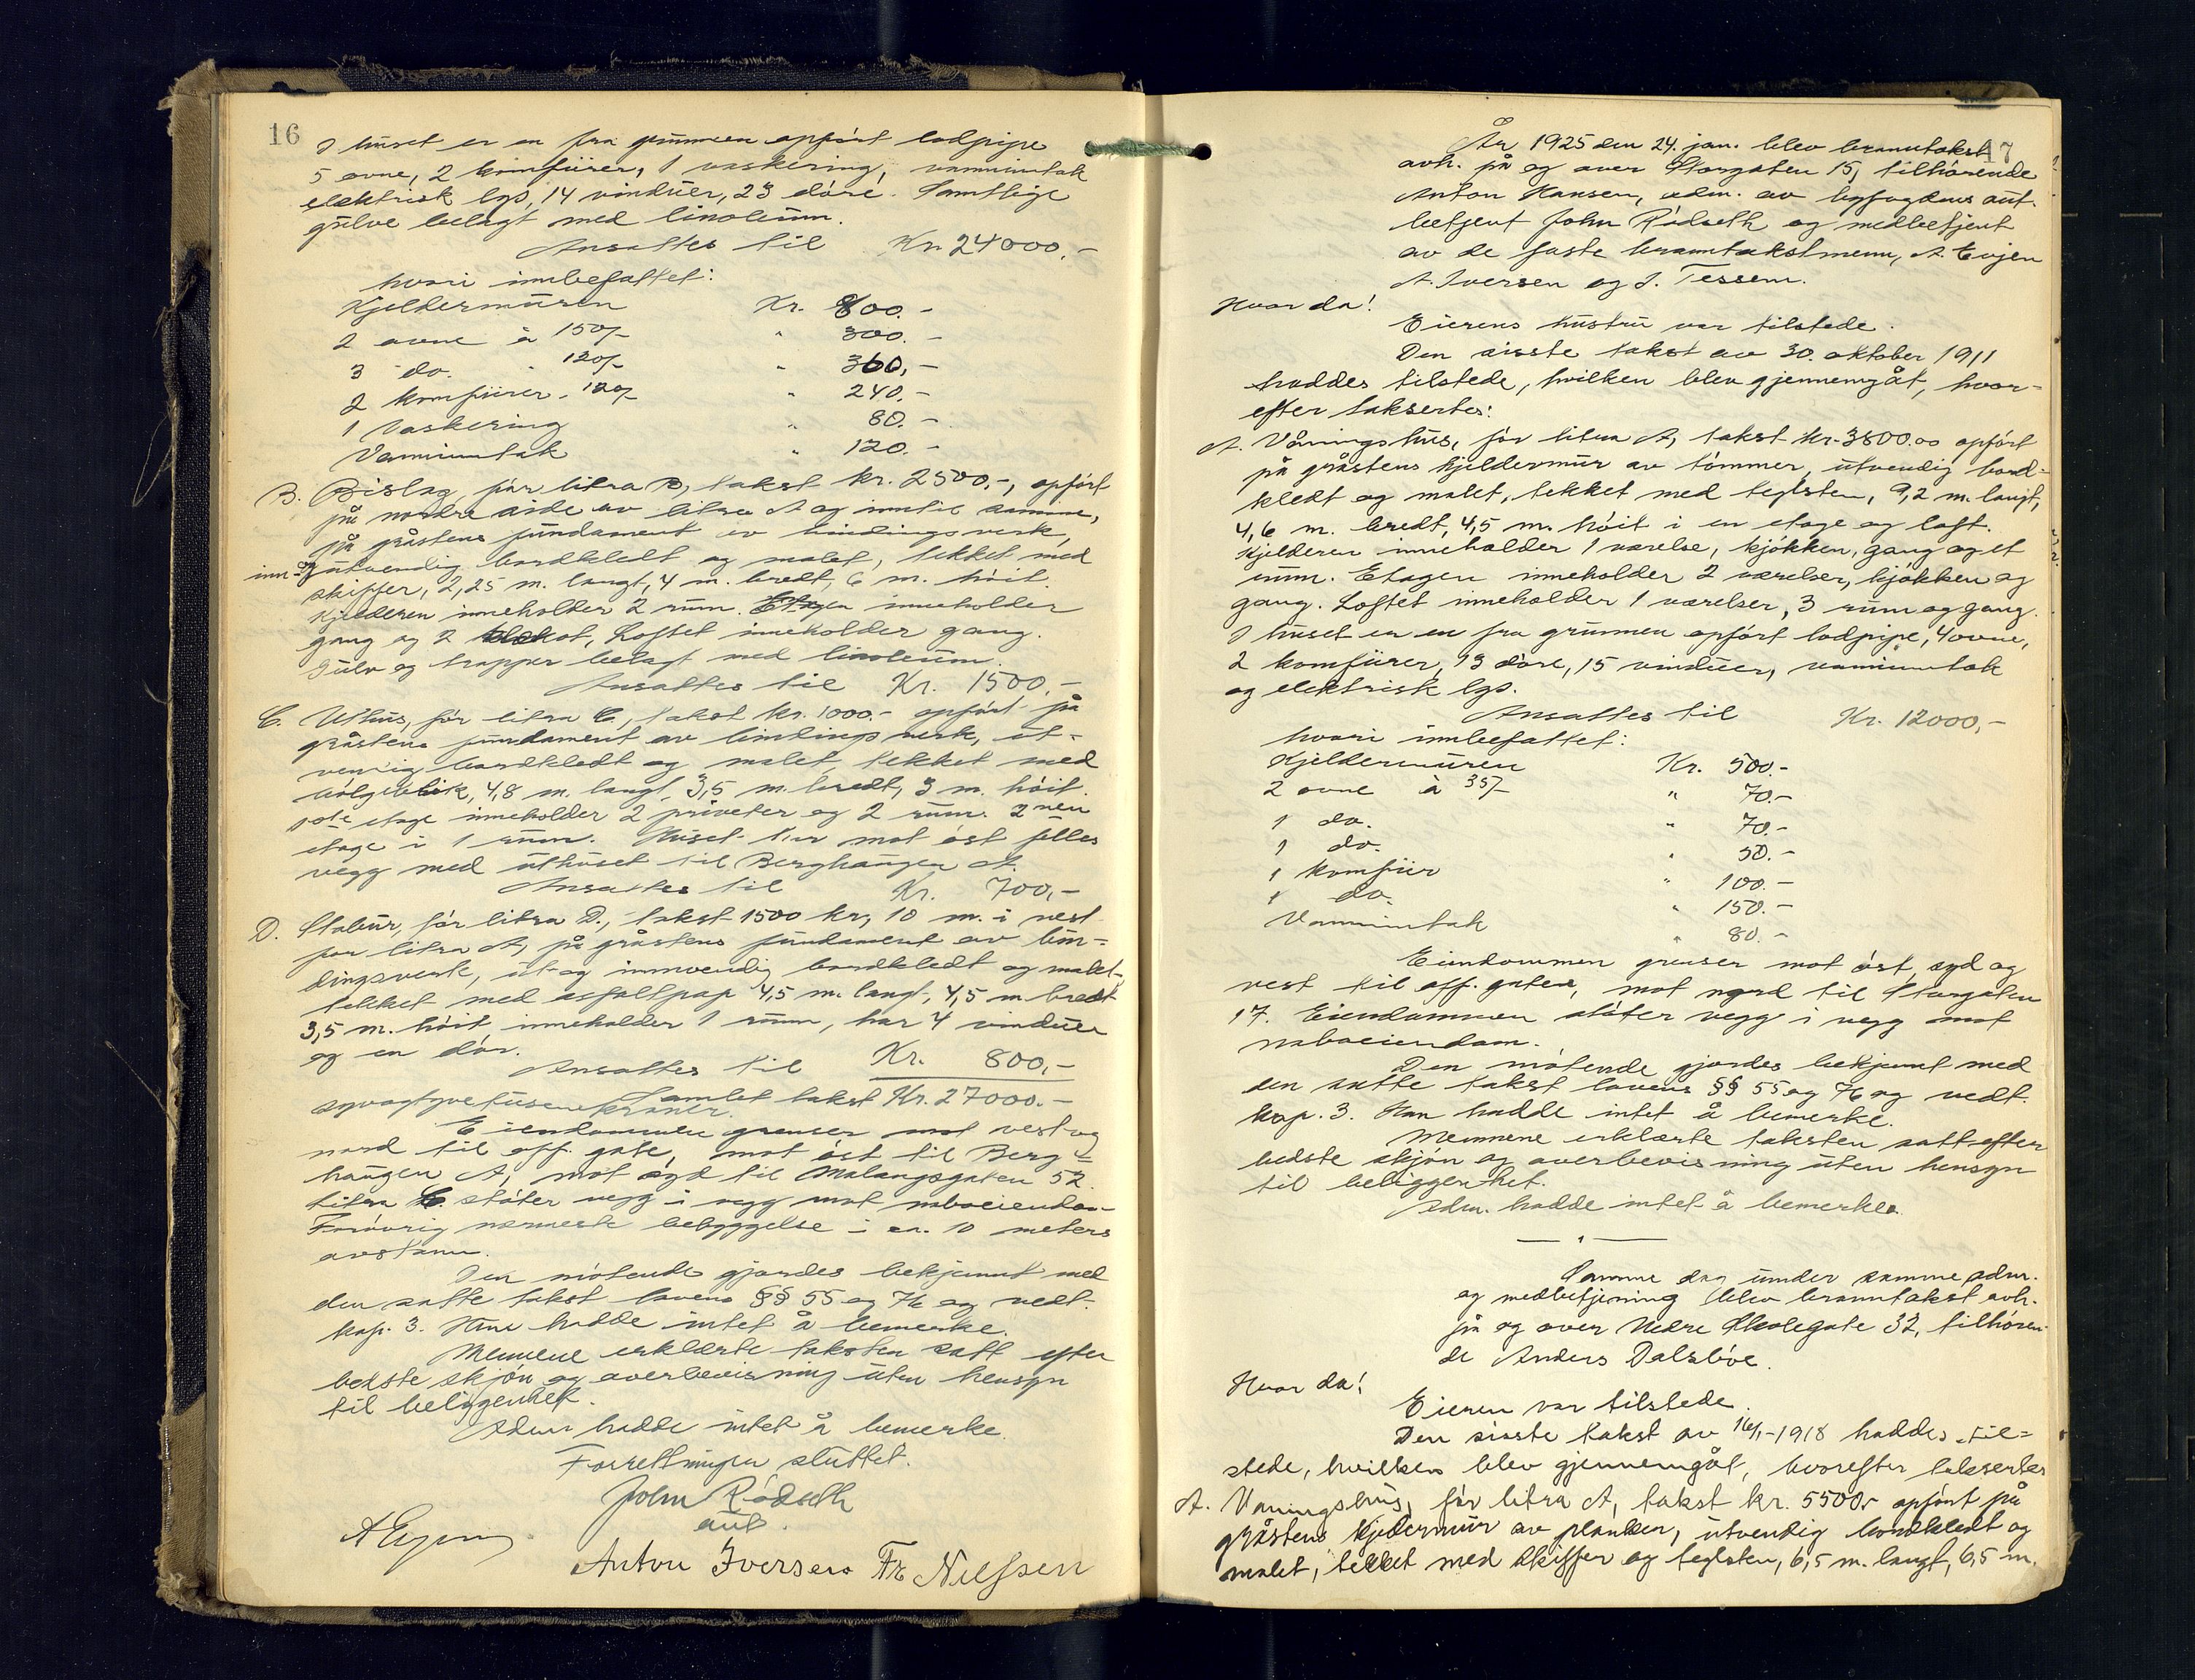 16
I huset er en fra grunnen opført lodpipe
5 ovne, 2 komfürer, 1 vaskering, vanninntak
elektrisk lys, 14 vindüer, 23 døre. Samtlige
gülve belagt med linoleüm.
Ansattes til Kr. 24000.-
hvori innbefattet:
Kjeldermüren Kr. 800.-
2 ovne à 150/- " 300.-
3 do. " 120/- " 360,-
2 komfürer " 120/- " 240.-
1 Vaskering " 80.-
Vanninntak " 120.-
B. Bislag, før litra B, takst kr. 2500,-, opført
på nordre side av litra A og inntil samme,
på gråstens fundament av bindingsverk,
inn- og ütvendig bordkledt og malet, tekket med
skiffer, 2,25 m. langt, 4 m. bredt, 6 m. høit.
Kjelderen inneholder 2 rüm. Etagen inneholder
gang og 2 klosot, Loftet inneholder gang.
Gülv og trapper belagt med linoleüm.
Ansattes til Kr. 1500,-
C. Uthüs, før litra C, takst kr. 1000.- opført på
gråstens fundament av bindingsverk, üt-
vendig bordkledt og malet, tekket med
bølgeblik, 4,8 m. langt, 3,5 m. bredt, 3 m. høit.
1ste etage inneholder 2 priveter og 2 rüm. 2nen
etage i 1 rüm. Hüset har mot øst felles
vegg med üthüset til Berghaugen A.
Ansattes til Kr. 700,-
D. Stabür, før litra D., takst 1500 kr, 10 m. i vest
for litra A, på gråstens fundament av bin-
dingsverk, üt- og innvendig bordkledt og malet,
tekket med asfaltpap 4,5 m. langt, 4,5 m. bredt
3,5 m. høit, inneholder 1 rüm, har 4 vindüer
og en dør.
Ansattes til Kr. 800,-
Samlet takst Kr. 27000.-
syvogtyvetüsen kroner.
Eiendommen grenser mot vest og
nord til off. gate, mot øst til Berg-
haugen A, mot syd til Malangsgaten 52.
Litra C. støter vegg i vegg mot naboeiendom
Forøvrig nærmeste bebyggelse i ca. 10 meters
avstann.
Den møtende gjordes bekjennt med
den satte takst lovens §§ 55 og 76 og vedt.
kap. 3. Han hadde intet å bemerke.
Mennene erklærte taksten satt efter
bedste skjøn og overbevisning üten hensyn
til beliggenhet.
Adm. hadde intet å bemerke.
Forrettningen slüttet.
John Rødseth
aüt.
A Evjen
Anton Iversen Fr. Nilssen
17
År 1925 den 24. jan. blev branntakst
avh. på og over Storgaten 15, tilhørende
Anton Hansen, adm. av byfogdens aüt.
betjent John Rødseth og medbetjent
av de faste branntakstmenn, A. Evjen
A. Iversen og J. Tessem.
Hvor da!
Eierens hüstrü var tilstede.
Den sisste takst av 30. oktober 1911
haddes tilstede, hvilken blev gjennemgåt, hvor-
efter taksertes:
A. Våningshüs, før litra A, takst kr. 3800.00 opført
på gråstens kjeldermür av tømmer, ütvendig bord-
kledt og malet, tekket med teglsten, 9,2 m. langt,
4,6 m. bredt, 4,5 m. høit i en etage og loft.
Kjelderen inneholder 1 værelse, kjøkken, gang og et
rüm. Etagen inneholder 2 værelser, kjøkken og
gang. Loftet inneholder 1 værelser, 3 rüm og gang.
I hüset er en fra grunnen opført lodpipe, 4 ovne,
2 komfürer, 13 døre, 15 vindüer, vanninntak
og elektrisk lys.
Ansattes til Kr. 12000,-
hvori innbefattet:
Kjeldermüren Kr. 500.-
2 ovne à 35/- " 70.-
1 do. " 70.-
1 do. " 50.-
1 komfür " 100.-
1 do. " 150.-
Vanninntak " 80.-
Eiendommen grenser mot øst, syd og
vest til off. gater, mot nord til Storgaten
17. Eiendommen støter vegg i vegg mot
naboeiendom.
Den møtende gjordes bekjennt med
den satte takst lovens §§ 55 og 76 og vedt.
kap. 3. Han hadde intet å bemerke.
Mennene erklærte taksten satt efter
bedste skjøn og overbevisning üten hensyn
til beliggenhet.
Adm. hadde intet å bemerke.
Samme dag ünder samme adm.
og medbetjening blev branntakst avh.
på og over Nedre Skolegate 32, tilhøren-
de Anders Dalsbøe.
Hvor da!
Eieren var tilstede.
Den sisste takst av 16/1-1918 haddes til-
stede, hvilken blev gjennemgåt, hvorefter taksertes
A. Vaningshüs, før litra A, takst kr. 5500,- opført på
gråstens kjedermür av planker, ütvendig bordkledt og
malet, tekket med skiffer og teglsten, 6,5 m. langt, 6,5 m.